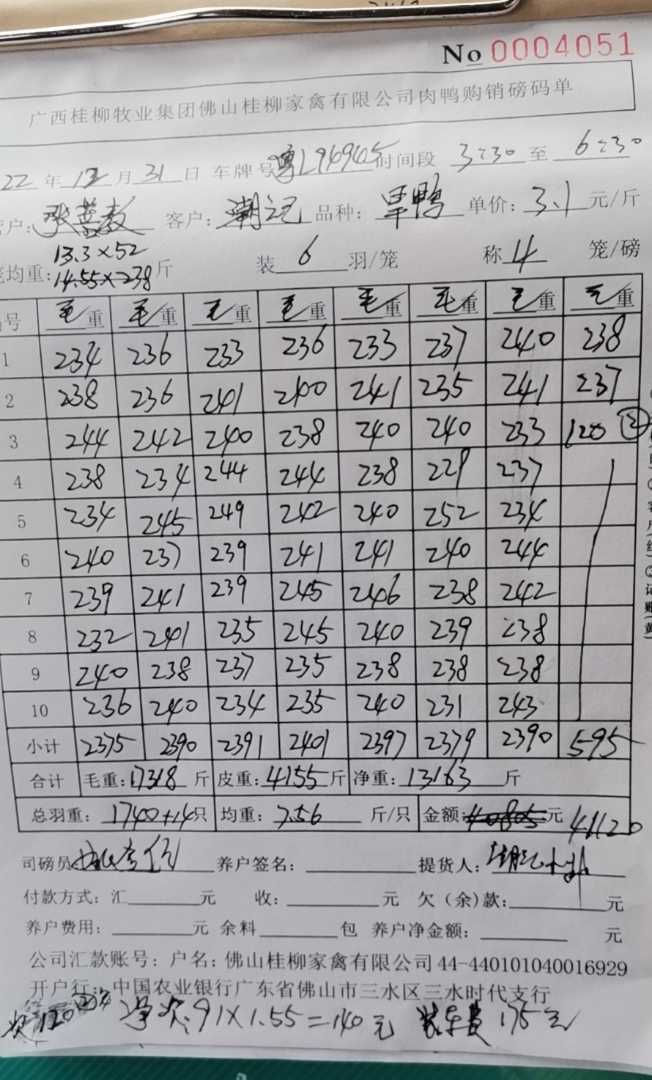 No 0004051
广西桂柳牧业集团佛山桂柳家禽有限公司肉鸭购销磅码单
22 年 12 月 31 日 车牌号 粤L94945 时间段 3:30 至 6:30
户: 客户: 潮记 品种: 旱鸭 单价: 3.1 元/斤
13.3×52
笼均重: 14.55×238 斤 装 6 羽/笼 称 4 笼/磅
号 毛重 毛重 毛重 毛重 毛重 毛重 毛重 毛重
1 234 236 233 236 233 237 240 238
2 238 236 241 240 241 235 241 237
3 244 242 240 238 240 240 233 120 ②
4 238 234 244 244 238 229 237
5 234 245 249 242 240 252 234
6 240 237 239 241 241 240 244
7 239 241 239 245 246 238 242
8 232 241 235 245 240 239 238
9 240 238 237 235 238 238 238
10 236 240 234 235 240 231 243
小计 2375 2390 2391 2401 2397 2379 2390 595
合计 毛重: 17318 斤 皮重: 4155 斤 净重: 13163 斤
总羽重: 1740+14只 均重: 7.56 斤/只 金额: 40805 元 41120
司磅员 养户签名: 提货人:
付款方式: 汇 元 收: 元 欠(余)款: 元
养户费用: 元 余料 包 养户净金额: 元
公司汇款账号: 户名: 佛山桂柳家禽有限公司 44-440101040016929
开户行: 中国农业银行广东省佛山市三水区三水时代支行
120 91×1.55=140元 装车费 175元